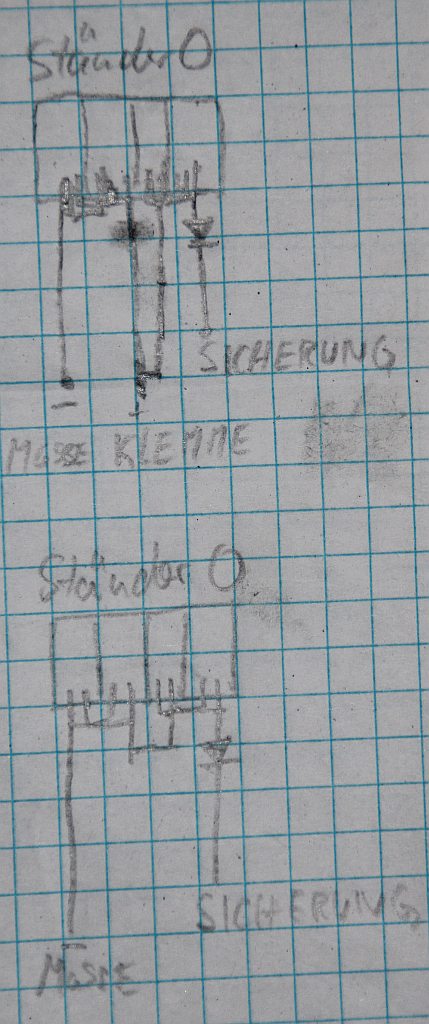 Ständer O
SICHERUNG
MASSE KLEMME
Ständer O
SICHERUNG
MASSE